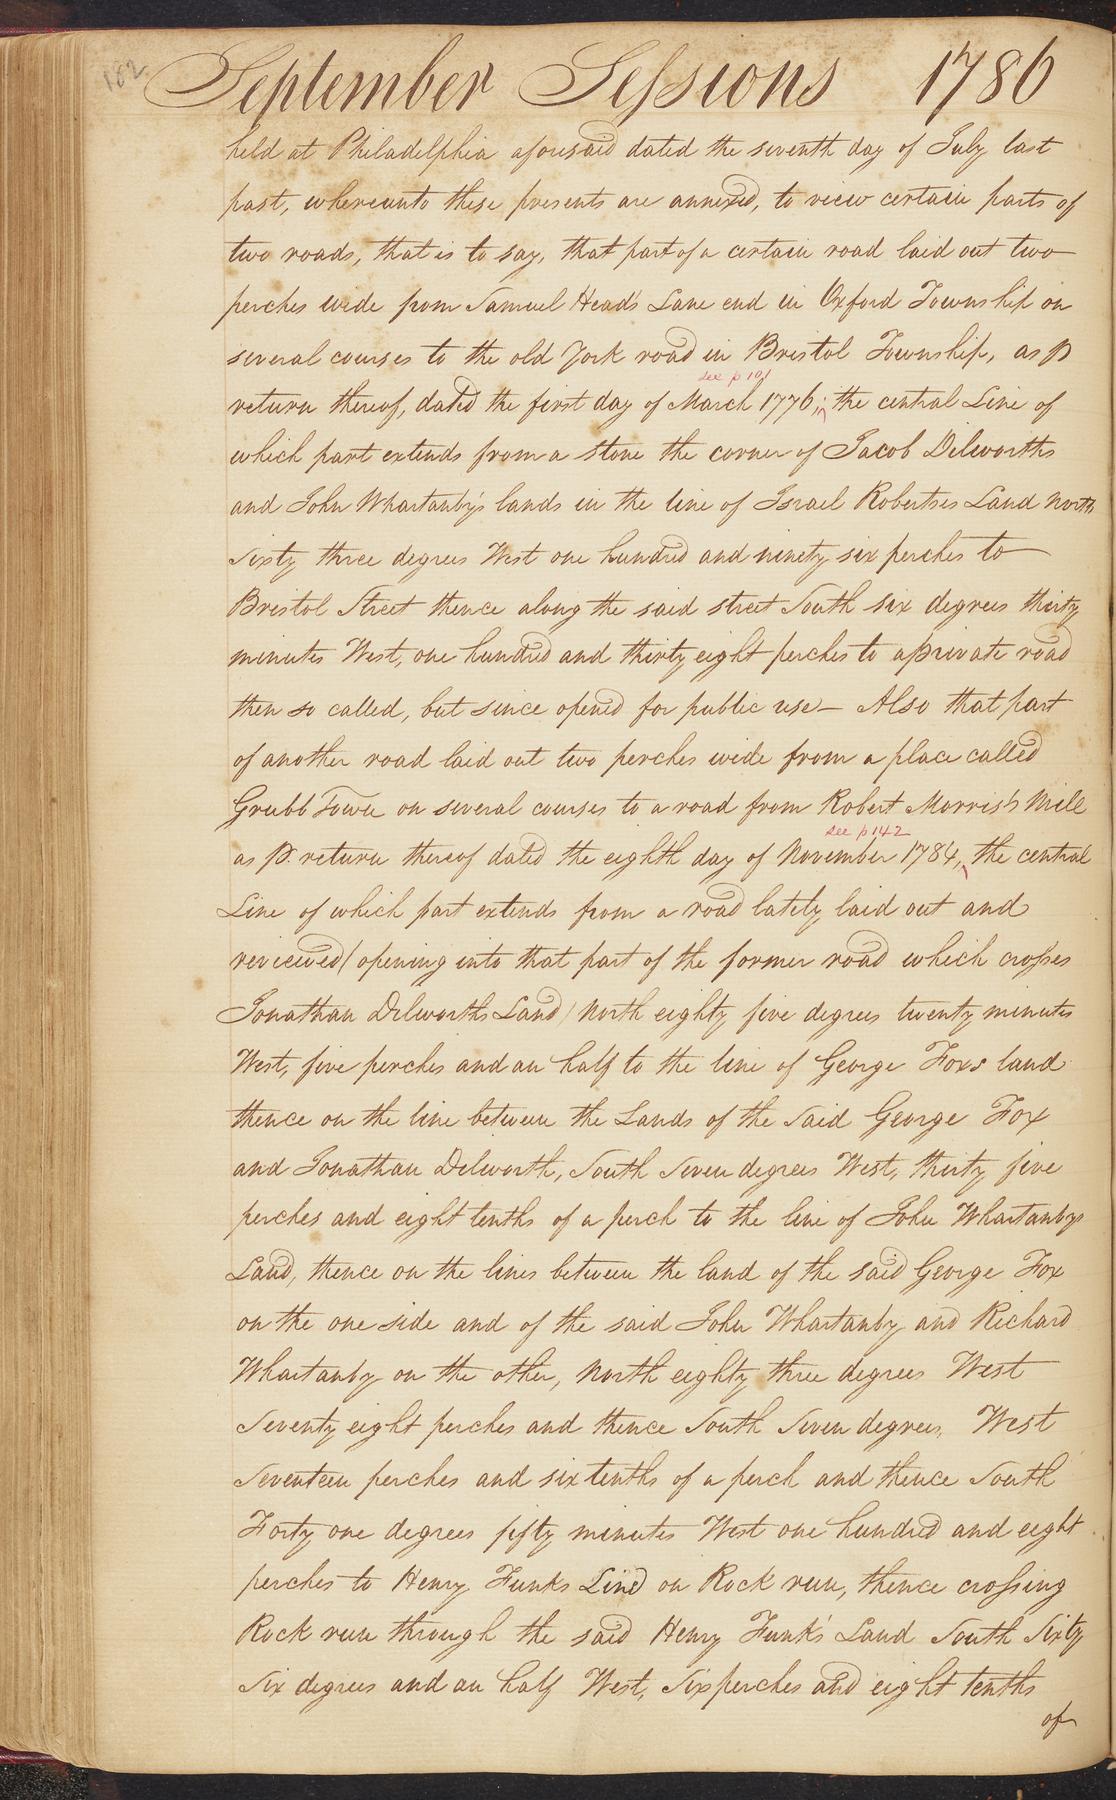 182
September Sessions 1786
held at Philadelphia aforesaid dated the seventh day of July last
past, whereunto these presents are annexed, to view certain parts of
two roads, that is to say, that part of a certain road laid out two
perches wide from Samuel Head's Lane end in Oxford Township on
several courses to the old York road in Bristol Township, as P
see p 101
return thereof, dated the first day of March 1776, the central Line of
which part extends from a stone the corner of Jacob Dilworths
and John Whartanby's lands in the line of Israel Robertses Land North
Sixty three degrees West one hundred and ninety six perches to
Bristol Street thence along the said street South six degrees thirty
minutes West, one hundred and thirty eight perches to a private road
then so called, but since opened for public use — Also that part
of another road laid out two perches wide from a place called
Grubb Town on several courses to a road from Robert Morris's Mill
see p 142
as P. return thereof dated the eighth day of November 1784, the central
Line of which part extends from a road lately laid out and
reviewed (opening into that part of the former road which crosses
Jonathan Dilworths Land) North eighty five degrees twenty minutes
West, five perches and an half to the line of George Foxs land
thence on the line between the Lands of the Said George Fox
and Jonathan Dilworth, South Seven degrees West, thirty five
perches and eight tenths of a perch to the line of John Whartanbys
Land, thence on the lines between the land of the said George Fox
on the one side and of the said John Whartanby and Richard
Whartanby on the other, North eighty three degrees West
Seventy eight perches and thence South Seven degrees West
Seventeen perches and six tenths of a perch and thence South
Forty one degrees fifty minutes West one hundred and eight
perches to Henry Funks Line on Rock run, thence crossing
Rock run through the said Henry Funk's Land South Sixty
Six degrees and an half West, Six perches and eight tenths
of